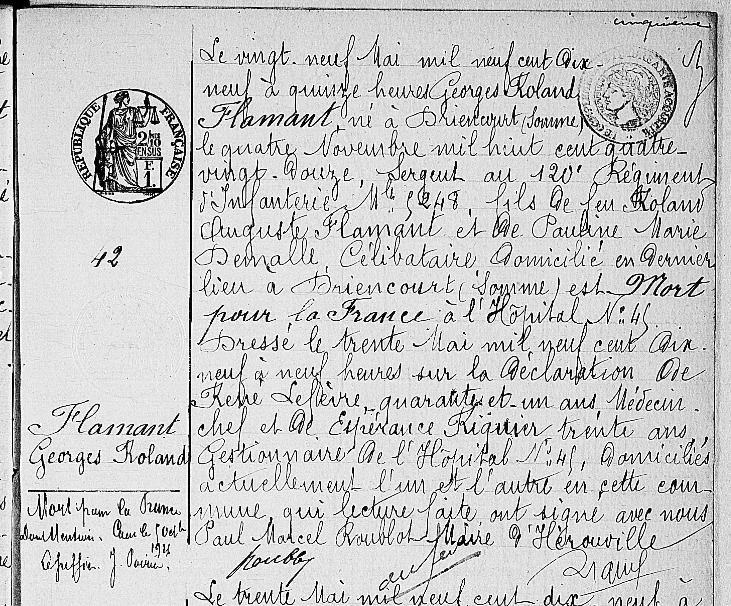 cinquième
Le vingt-neuf Mai mil neuf cent dix-
neuf à quinze heures Georges Roland
Flamant, né à Driencourt (Somme)
le quatre Novembre mil huit cent quatre-
vingt-douze, sergent au 120e Régiment
d'Infanterie Mle 5248, fils de feu Roland
Auguste Flamant et de Pauline Marie
Demalle, Célibataire Domicilié en dernier
lieu à Driencourt (Somme) est Mort
pour la France à l'Hôpital No 45
Dressé le trente Mai mil neuf cent dix-
neuf à neuf heures sur la déclaration de
René Lefèvre, quarante-et-un ans Médecin-
chef et de Espérance Riquier trente ans
Gestionnaire de l'Hôpital No 45, domiciliés
actuellement l'un et l'autre en cette com-
mune, qui lecture faite ont signé avec nous
Paul Marcel Roublot Maire d'Hérouville
Roublot
Le trente Mai mil neuf cent dix neuf à
RÉPUBLIQUE FRANÇAISE
42
Flamant
Georges Roland
Mort pour la France
1921